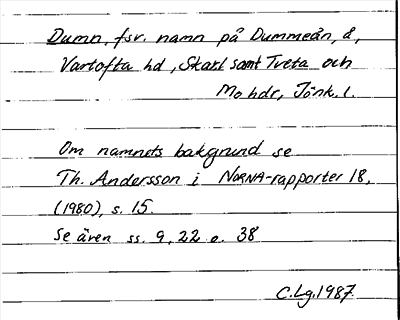 Dumn, fsv. namn på Dummeån, å,
Vartofta hd, Skarl samt Tveta och
Mo hdr, Jönk. l.
Om namnets bakgrund se
Th. Andersson i NORNA-rapporter 18,
(1980), s. 15.
Se även ss. 9, 22 o. 38
C.Lg. 1987